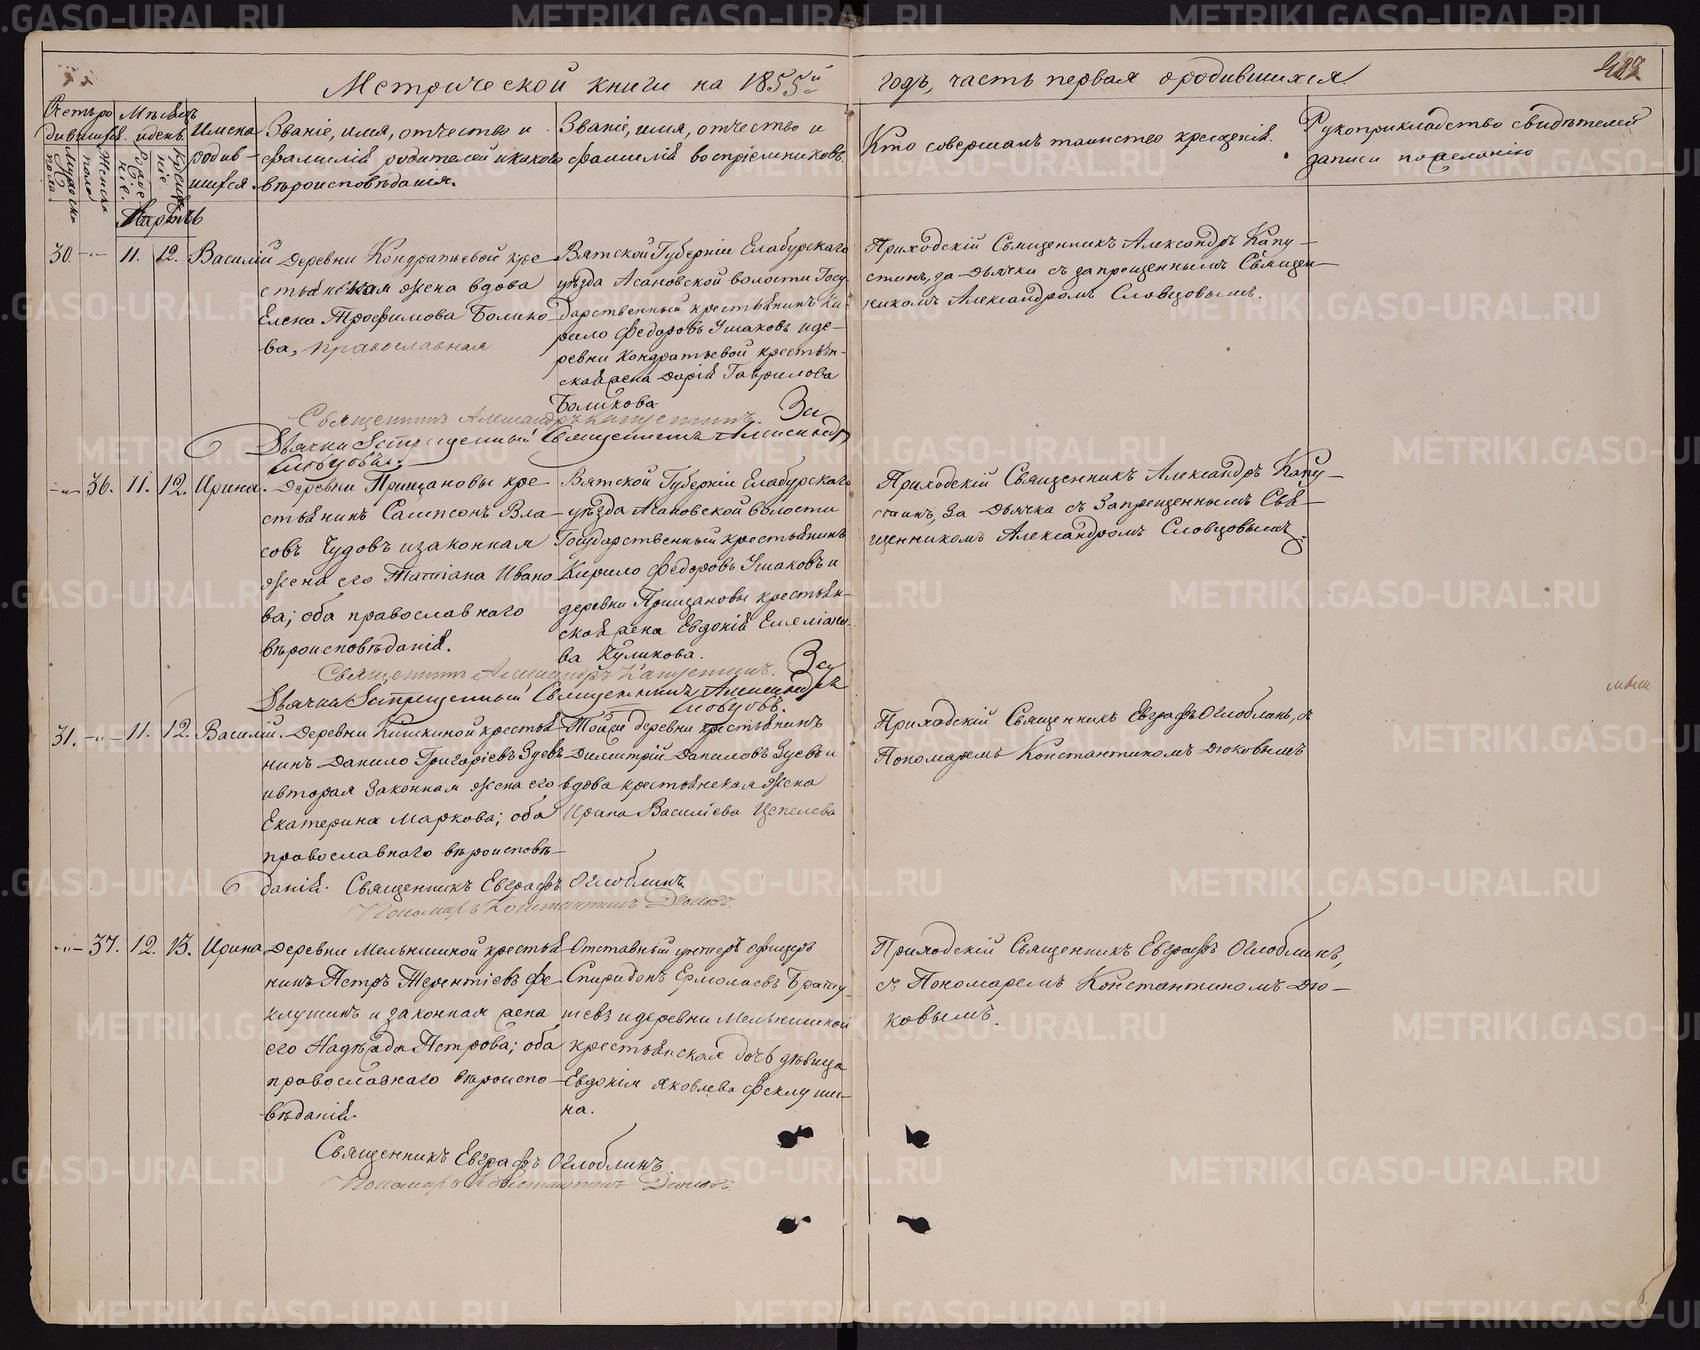 Метрической книги на 1855й годъ, часть первая о родившихся.
Счетъ родившихся.
Мужеска пола
Женска пола
Мѣсяцъ и день
Рожденіе.
Крещеніе.
Имена родившихся.
Званіе, имя, отчество и
фамилія родителей и какого
вѣроисповѣданія.
Званіе, имя, отчество и
фамилія воспріемниковъ.
Кто совершалъ таинство крещенія.
Рукоприкладство свидѣтелей
записи по желанію
Мартъ
30. 11. 12. Василій
Деревни Кондратьевой кре-
стьянская жена вдова
Елена Трофимова Болико-
ва, православная
Вятской Губерніи Елабурскаго
уѣзда Асановской волости Госу-
дарственный крестьянинъ Ки-
рило Федоровъ Ушаковъ и де-
ревни Кондратьевой крестьян-
ская жена Дарія Гаврилова
Боликова
Приходскій Священникъ Александръ Капу-
стинъ, за дьячка съ запрещеннымъ Священ-
никомъ Александромъ Словцовымъ.
Священникъ Александръ Капустинъ. За
Дьячка Запрещенный Священникъ Александръ
Словцовъ.
36. 11. 12. Ирина.
Деревни Прищановы кре-
стьянинъ Сампсонъ Вла-
совъ Чудовъ и законная
жена его Татіана Ивано-
ва; оба православнаго
вѣроисповѣданія.
Вятской Губерніи Елабурскаго
уѣзда Асановской волости
Государственный крестьянинъ
Кирило Федоровъ Ушаковъ и
деревни Прищановы крестьян-
ская жена Евдокія Емеліано-
ва Куликова.
Приходскій Священникъ Александръ Капу-
стинъ, за дьячка съ Запрещеннымъ Свя-
щенникомъ Александромъ Словцовымъ.
Священникъ Александръ Капустинъ. За
Дьячка Запрещенный Священникъ Александръ
Словцовъ.
31. 11. 12. Василій.
Деревни Кишкиной крестья-
нинъ Данило Григоріевъ Зуевъ
и вторая законная жена его
Екатерина Маркова; оба
православнаго вѣроисповѣ-
данія.
Тойже деревни крестьянинъ
Димитрій Даниловъ Зуевъ и
вдова крестьянская жена
Ирина Василіева Цепелева
Приходскій Священникъ Евграфъ Оглоблинъ, съ
Пономаремъ Константиномъ Дюковымъ
Священникъ Евграфъ Оглоблинъ.
Пономарь Константинъ Дюковъ.
37. 12. 13. Ирина
Деревни Мельнишной крестья-
нинъ Петръ Терентіевъ Фе-
клушинъ и законная жена
его Надѣжда Петрова; оба
православнаго вѣроиспо-
вѣданія.
Отставный унтеръ офицеръ
Спиридонъ Ермолаевъ Брату-
шевъ и деревни Мельнишной
крестьянская дочь дѣвица
Евдокія Яковлева Феклуши-
на.
Приходскій Священникъ Евграфъ Оглоблинъ,
съ Пономаремъ Константиномъ Дю-
ковымъ.
Священникъ Евграфъ Оглоблинъ.
Пономарь Константинъ Дюковъ.
METRIKI.GASO-URAL.RU